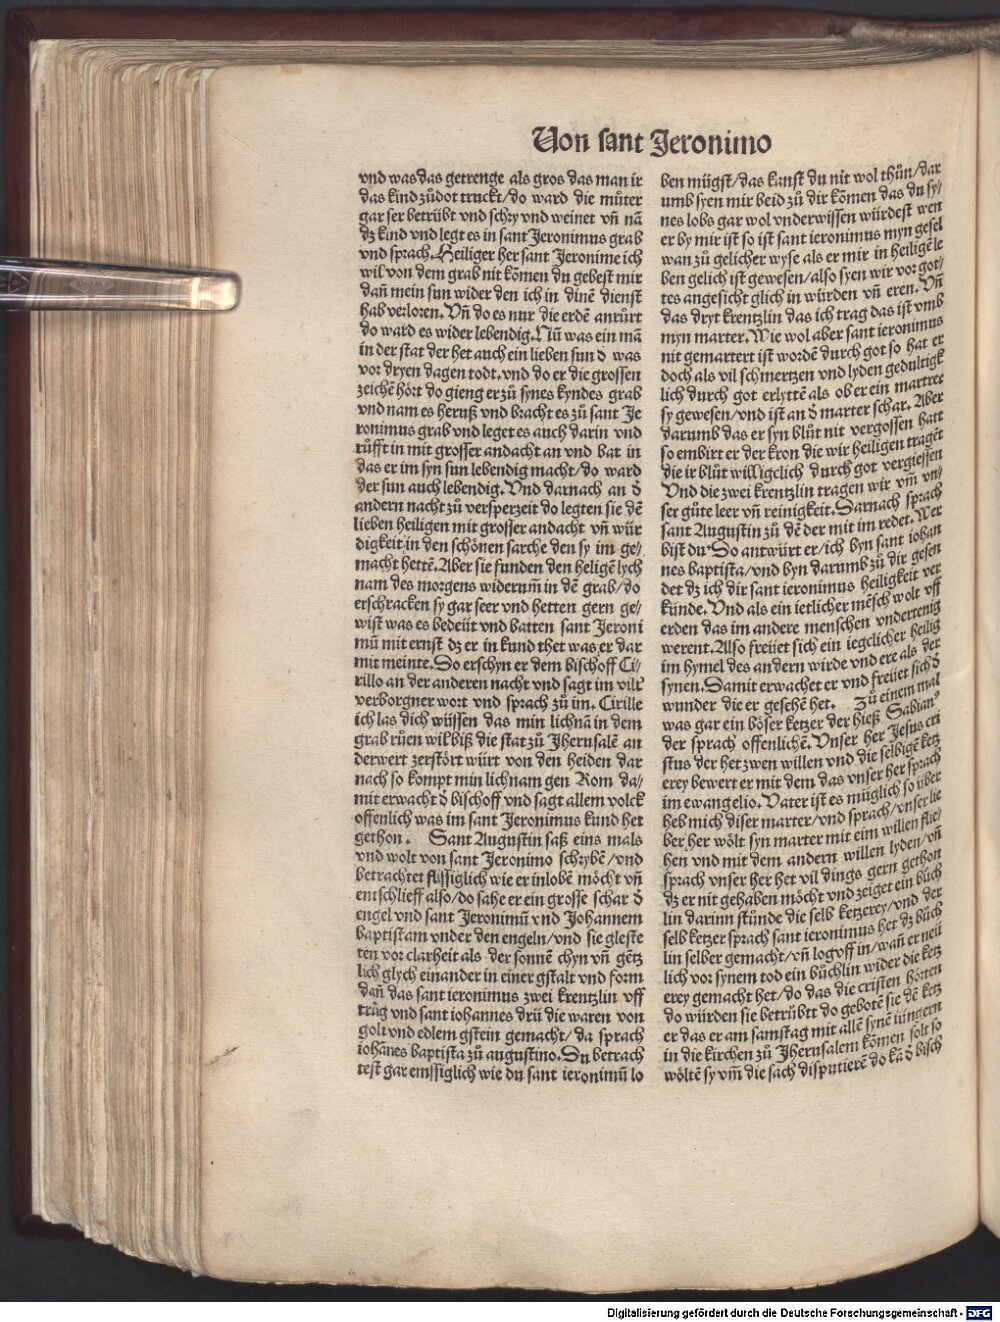 Von sant Jeronimo
vnd was das getrenge als gros das man ir
das kind zůdot truckt/do ward die můter
gar ser betrübt vnd schry vnd weinet vñ nã
dz kind vnd legt es in sant Jeronimus grab
vnd sprach. Heiliger her sant Jeronime ich
wil von dem grab nit kõmen du gebest mir
dañ mein sun wider den ich in dinẽ dienst
hab verloren. Vñ do es nur die erdẽ anrürt
do ward es wider lebendig. Nũ was ein mã
in der stat der het auch ein lieben sun d̄ was
vor dryen dagen todt. vnd do er die grossen
zeichẽ hört do gieng er zů synes kyndes grab
vnd nam es heruß vnd bracht es zů sant Je
ronimus grab vnd leget es auch darin vnd
růfft in mit grosser andacht an vnd bat in
das er im syn sun lebendig macht/do ward
der sun auch lebendig. Vnd darnach an d̄
andern nacht zů versperzeit do legten sie dẽ
lieben heiligen mit grosser andacht vñ wür
digkeit in den schönen sarche den sy im ge/
macht hettẽ. Aber sie funden den heligẽ lych
nam des morgens widerum̃ in dẽ grab/do
erschracken sy gar seer vnd hetten gern ge/
wist was es bedeüt vnd batten sant Jeroni
mũ mit ernst dz er in kund thet was er dar
mit meinte. So erschyn er dem bischoff Ci/
rillo an der anderen nacht vnd sagt im vil
verborgner wort vnd sprach zů im. Cirille
ich las dich wüssen das min lichnã in dem
grab růen wil biß die stat zů Jherusalẽ an
derwert zerstört würt von den heiden dar
nach so kompt min lichnam gen Rom da/
mit erwacht d̄ bischoff vnd sagt allem volck
offenlich was im sant Jeronimus kund het
gethon. Sant Augustin saß eins mals
vnd wolt von sant Jeronimo schrybẽ/vnd
betrachtet flissiglich wie er in lobẽ möcht vñ
entschlieff also/do sahe er ein grosse schar d̄
engel vnd sant Jeronimũ vnd Johannem
baptistam vnder den engeln/vnd sie gleste
ten vor clarheit als der sonnẽ chyn vñ gẽtz
lich glych einander in einer gstalt vnd form
dañ das sant ieronimus zwei krentzlin vff
trůg vnd sant iohannes drü die waren von
golt vnd edlem gstein gemacht/da sprach
iohãnes baptista zů augustino. Du betrach
test gar emssiglich wie du sant ieronimũ lo
ben mügst/das kanst du nit wol thůn/dar
umb syen mir beid zů dir kõmen das du sy/
nes lobs gar wol vnderwissen würdest wen
er by mir ist so ist sant ieronimus myn gesel
wan zů gelicher wyse als er mir in heiligẽ le
ben gelich ist gewesen/also syen wir vor got/
tes angesicht glich in würden vñ eren. Vñ
das dryt krentzlin das ich trag das ist vmb
myn marter. Wie wol aber sant ieronimus
nit gemartert ist wordẽ durch got so hat er
doch als vil schmertzen vnd lyden gedultigk
lich durch got erlyttẽ als ob er ein martrer
sy gewesen/vnd ist an d̄ marter schar. Aber
darumb das er syn blůt nit vergossen hatt
so embirt er der kron die wir heiligen tragẽt
die ir blůt williglich durch got vergiessen
Vnd die zwei krentzlin tragen wir vm̃ vn/
ser gůte leer vñ reinigkeit. Darnach sprach
sant Augustin zů dẽ der mit im redet. Wer
bist du? So antwürt er/ich byn sant iohan
nes baptista/vnd byn darumb zů dir gesen
det dz ich dir sant ieronimus heiligkeit ver
künde. Vnd als ein ietlicher mẽsch wolt vff
erden das im andere menschen vndertenig
werent. Also freüet sich ein iegclicher heilig
im hymel des andern wirde vnd ere als der
synen. Damit erwachet er vnd freüet sich d̄
wunder die er gesehẽ het. Zů einem mal
was gar ein böser ketzer der hieß Sabian⁹
der sprach offenlichẽ. Vnser her Jesus cri
stus der het zwen willen vnd die selbigẽ ketz
erey bewert er mit dem das vnser her sprach
im ewangelio. Vater ist es müglich so über
heb mich diser marter/vnd sprach/vnser lie
ber her wölt syn marter mit eim willen flie/
hen vnd mit dem andern willen lyden/vñ
sprach vnser her het vil dings gern gethon
dz er nit gehaben möcht vnd zeiget ein bůch
lin darinn stünde die selb ketzerey/vnd der
selb ketzer sprach sant ieronimus het dz bůch
lin selber gemacht/vñ log vff in/wañ er neü
lich vor synem tod ein büchlin wider die ketz
erey gemacht het/do das die cristen hörten
do würden sie betrübtt do gebotẽ sie dẽ ketz
er das er am samstag mit allẽ synẽ iüngern
in die kirchen zů Jherusalem kõmen solt so
wöltẽ sy vm̃ die sach disputierẽ do kã d̄ bisch
Digitalisierung gefördert durch die Deutsche Forschungsgemeinschaft - DFG